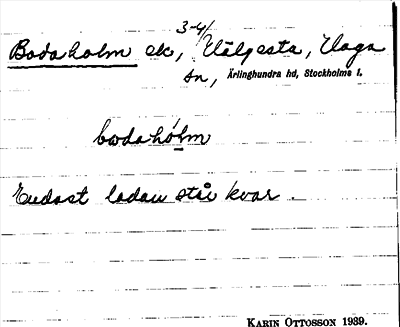 3-4/
Bodaholm ek, Välpsta, Vaga
sn, Ärlinghundra hd, Stockholms l.
bodahólm
Endast ladan står kvar.
KARIN OTTOSSON 1939.